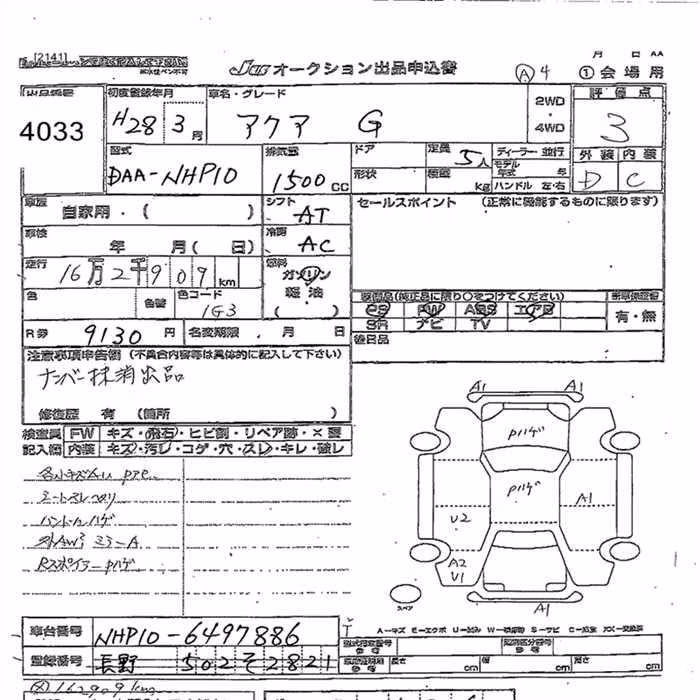 [2141]
JAA オークション出品申込書
月 日 AA
A 4
①会場用
出品番号
4033
初度登録年月
H28 3月
車名・グレード
アクア G
2WD
・
4WD
評価点
3
型式
DAA-NHP10
排気量
1500cc
ドア
形状
定員
5人
積載
kg
ディーラー・並行
モデル年式 年
ハンドル 左・右
外装
D
内装
C
車歴
自家用・( )
シフト
AT
セールスポイント (正常に機能するものに限ります)
車検
年 月( 日)
冷房
AC
走行
16万2千909km
燃料
ガソリン
軽油
( )
色
色替
色コード
1G3
装備品(純正品に限り○をつけてください)
PS PW ABS エアB
SR ナビ TV
新車保証書
有・無
R券
9130円
名変期限 ・ 月 日
後日品
注意事項申告欄 (不具合内容等は具体的に記入して下さい)
ナンバー抹消出品
修復歴 有 (箇所 )
検査員記入欄
FW キズ・飛石・ヒビ割・リペア跡・X 要
内装 キズ・汚レ・コゲ・穴・スレ・キレ・破レ
シートスレ
ハンドルハゲ
外AW
ミラーA
Rスポイラー Pハゲ
A1 A1
Pハゲ
Pハゲ
A1
U2
A2
U1
A1
スペア
A-キズ
車台番号
NHP10-6497886
登録番号
長野 502 そ 2821
型式指定番号
参考
類別区分番号
参考
長さ cm
幅 cm
高さ cm
162909km